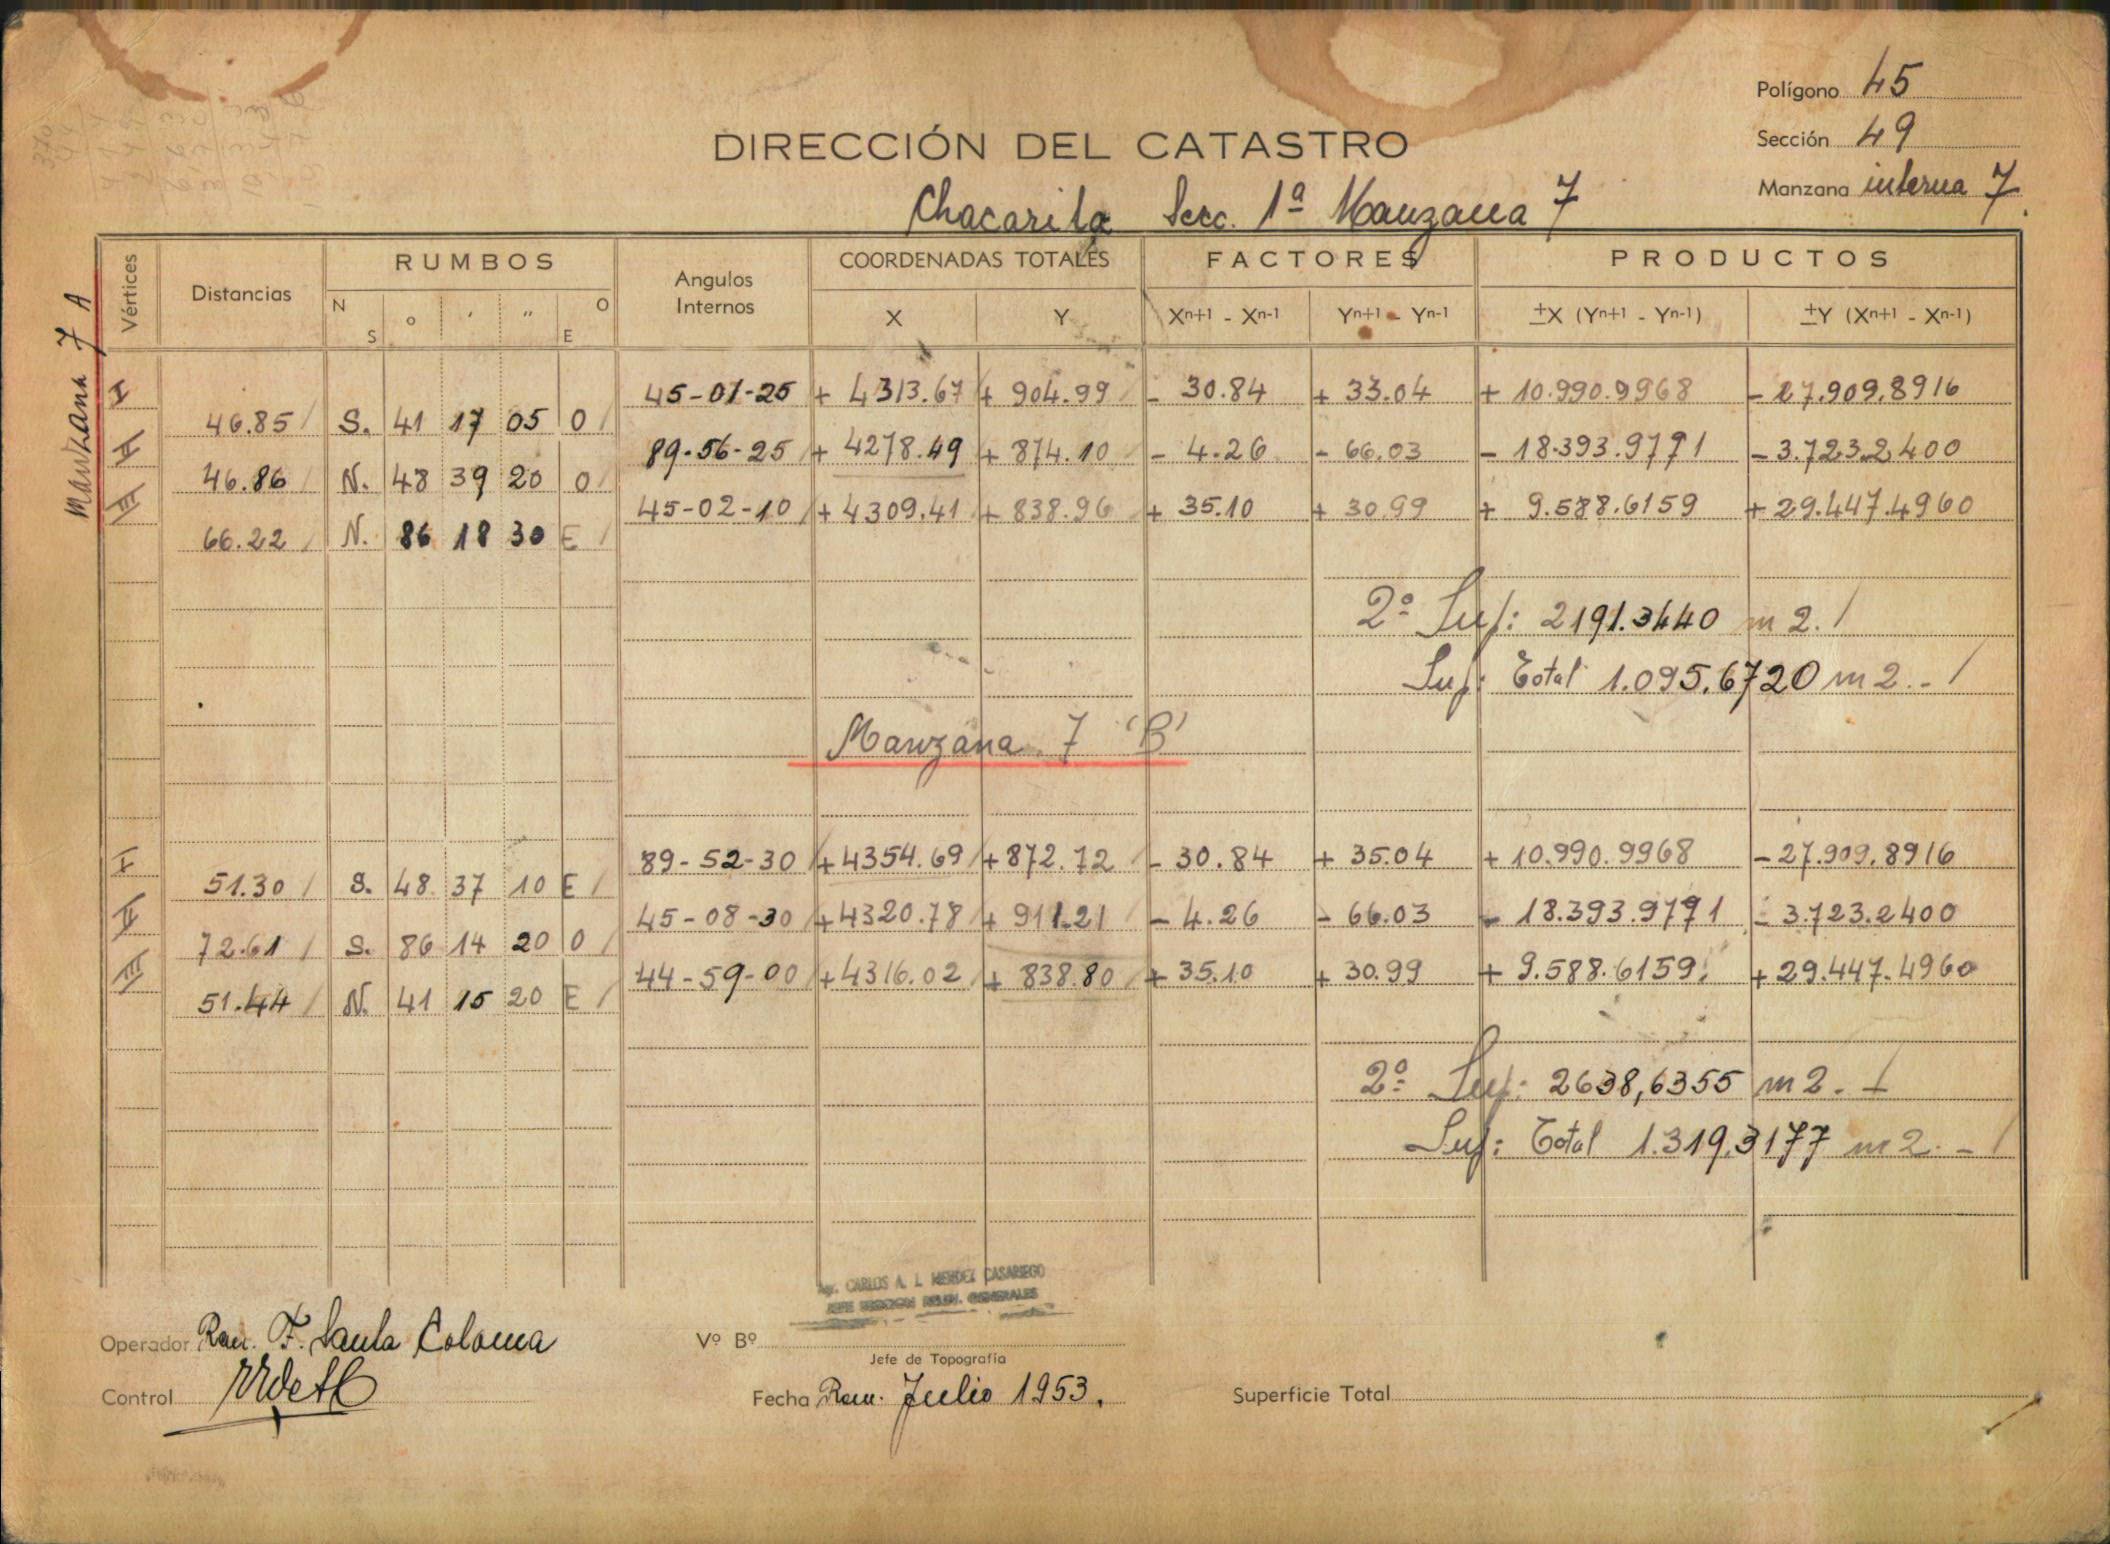 Polígono 45
Sección 49
Manzana interna 7.
DIRECCIÓN DEL CATASTRO
Chacarita Secc. 1ª Manzana 7
Manzana 7 A
Vértices Distancias RUMBOS Angulos Internos COORDENADAS TOTALES FACTORES PRODUCTOS
N S ° ' '' O E X Y Xn+1 - Xn-1 Yn+1 - Yn-1 ±X (Yn+1 - Yn-1) ±Y (Xn+1 - Xn-1)
I 45-01-25 + 4313.67 + 904.99 - 30.84 + 33.04 + 10.990.9968 - 27.909.8916
46.85 S. 41 17 05 O
II 89-56-25 + 4278.49 + 874.10 - 4.26 - 66.03 - 18.393.9771 - 3.723.2400
46.86 N. 48 39 20 O
III 45-02-10 + 4309.41 + 838.96 + 35.10 + 30.99 + 9.588.6159 + 29.447.4960
66.22 N. 86 18 30 E
2º Sup: 2191.3440 m2.
Sup: Total 1.095.6720 m2.-
Manzana 7 'B'
I 89-52-30 +4354.69 +872.72 - 30.84 + 35.04 + 10.990.9968 - 27.909.8916
51.30 S. 48 37 10 E
II 45-08-30 +4320.78 + 911.21 - 4.26 - 66.03 - 18.393.9771 - 3.723.2400
72.61 S. 86 14 20 O
III 44-59-00 +4316.02 + 838.80 + 35.10 + 30.99 + 9.588.6159. + 29.447.4960
51.44 N. 41 15 20 E
2º Sup: 2638,6355 m2.-
Sup: Total 1.319.3177 m2.-
CARLOS A. L. MENDEZ CASARIEGO
Operador Ram. F. Santa Coloma
Vº Bº
Jefe de Topografía
Control
Fecha Ram. Julio 1953.
Superficie Total